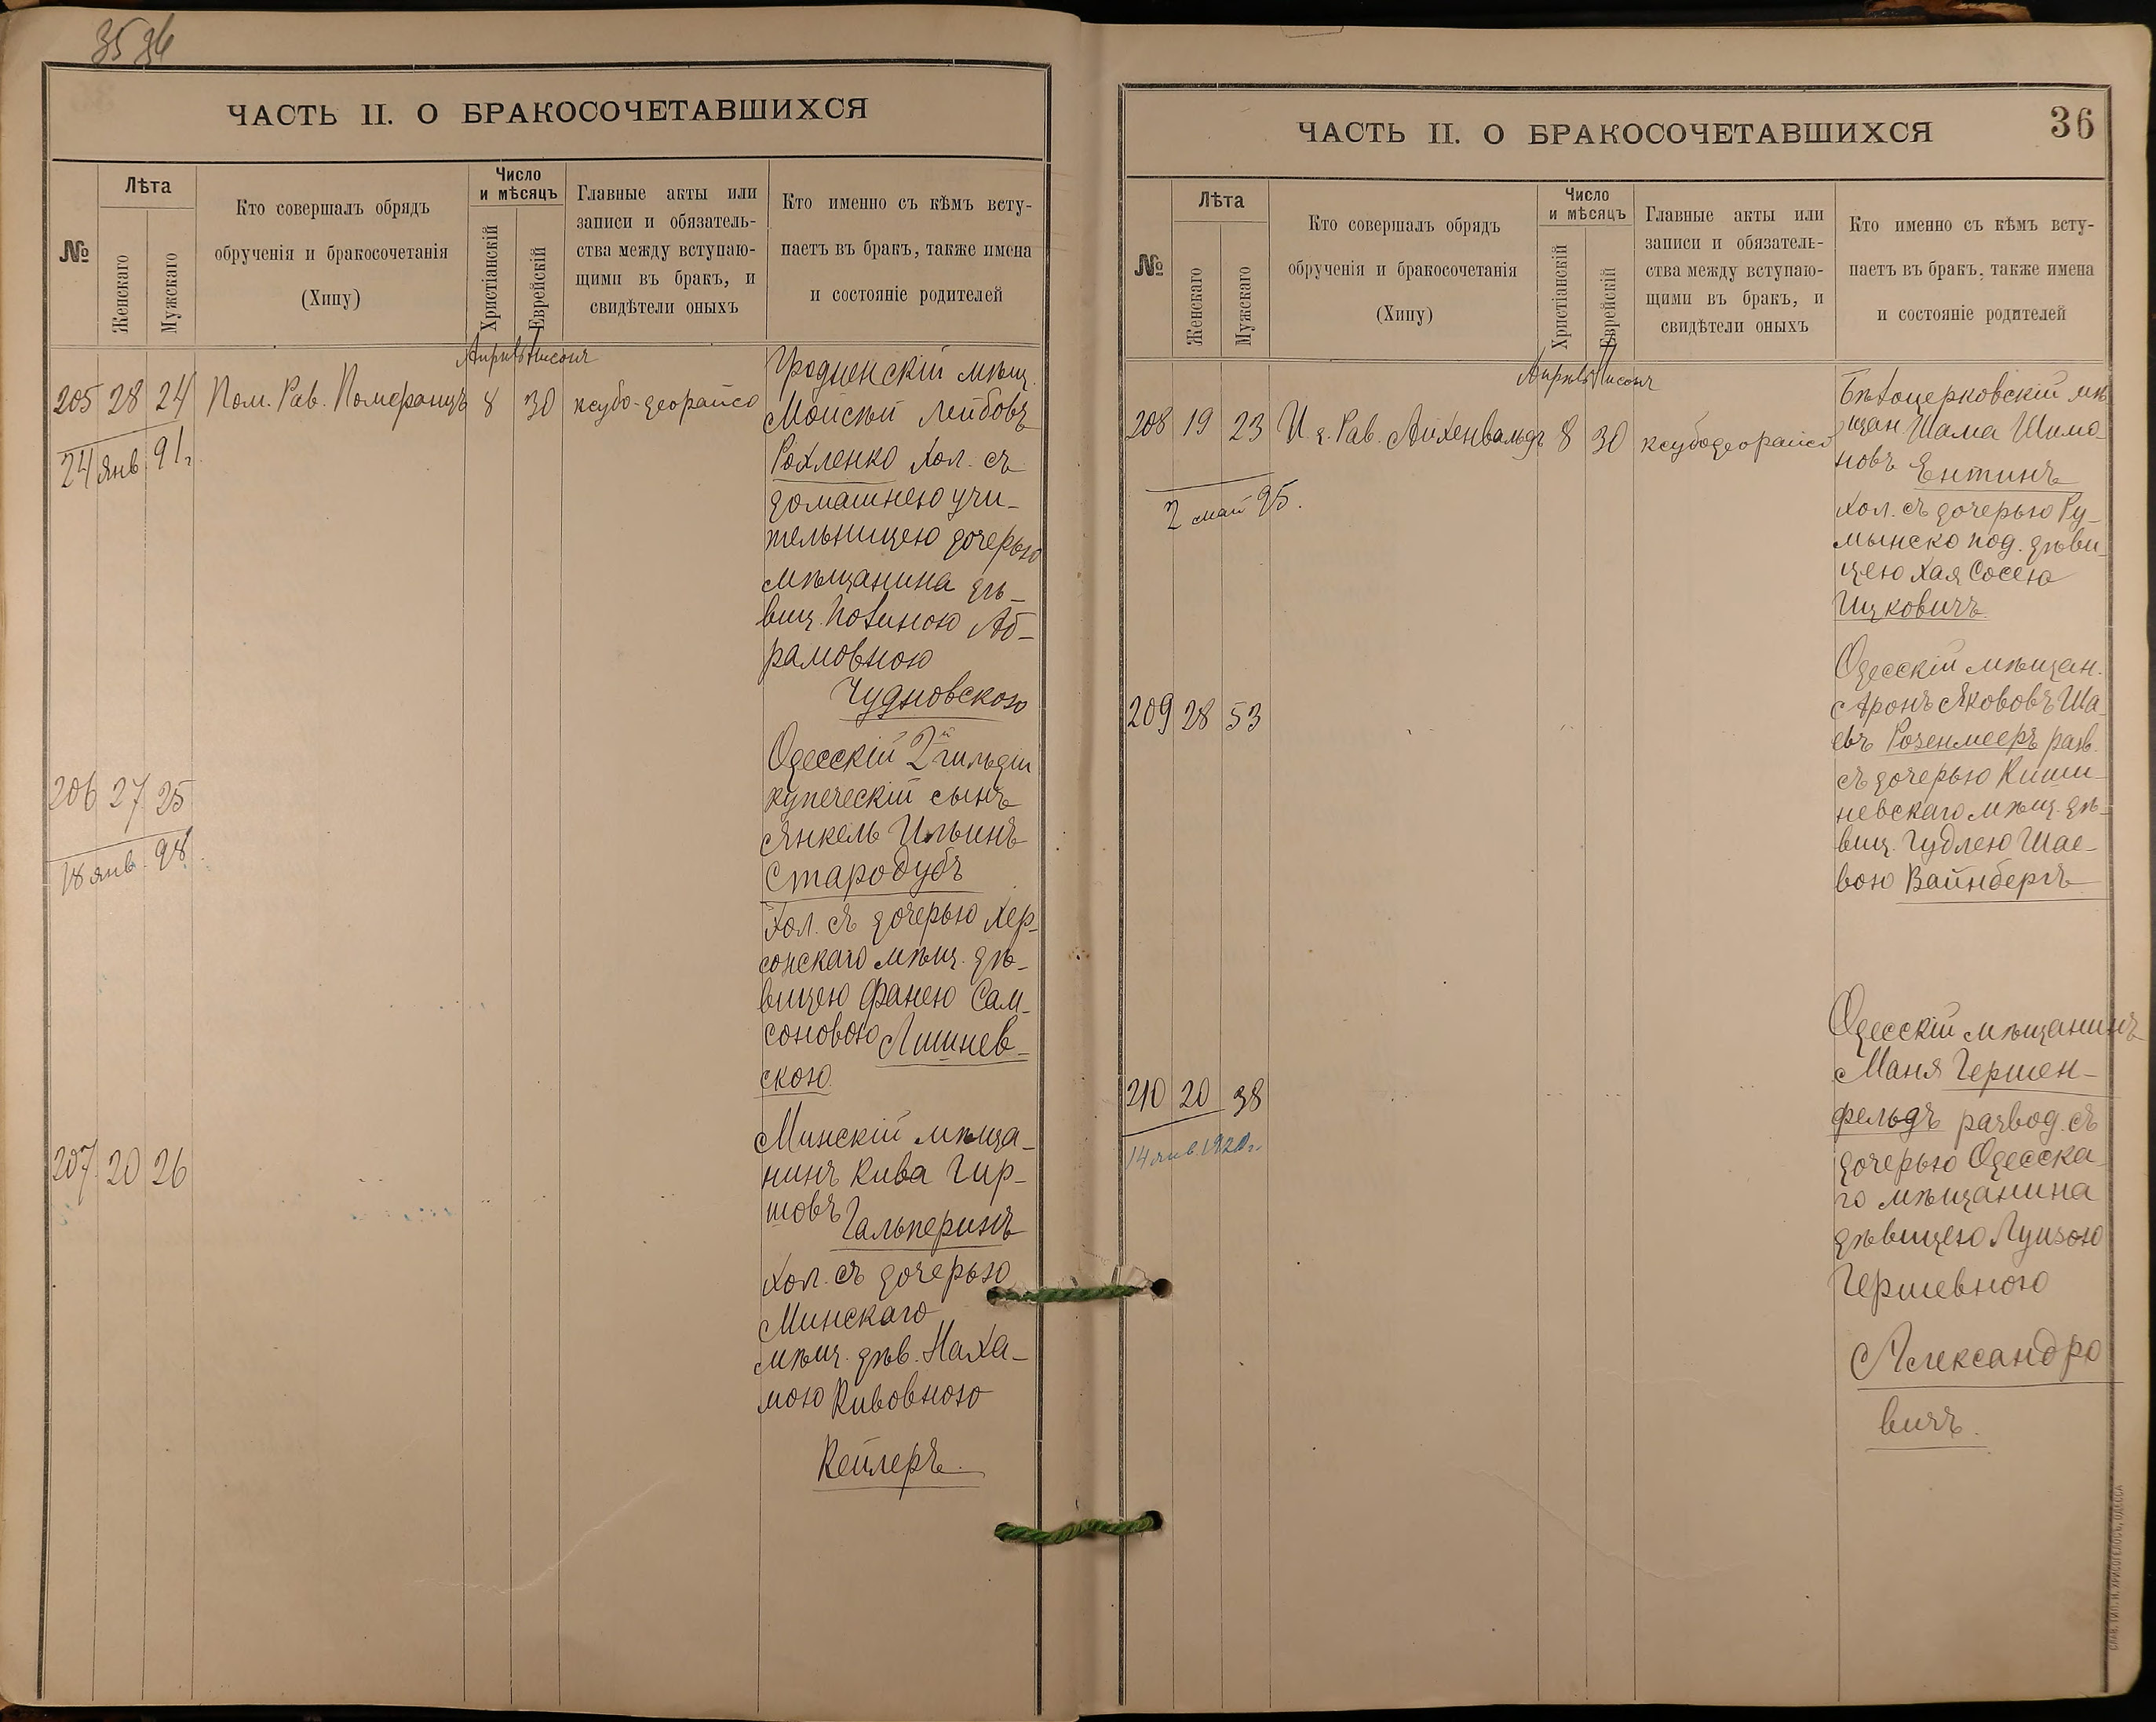 35 36
ЧАСТЬ II. О БРАКОСОЧЕТАВШИХСЯ
№
Лѣта
Женскаго
Мужскаго
Кто совершалъ обрядъ
обрученія и бракосочетанія
(Хипу)
Число
и мѣсяцъ
Христіанскій
Еврейскій
Главные акты или
записи и обязатель-
ства между вступаю-
щими въ бракъ, и
свидѣтели оныхъ
Кто именно съ кѣмъ всту-
паетъ въ бракъ, также имена
и состояніе родителей
Апрель Нисонъ
205 28 24 Пом. Рав. Померанцъ 8 30 ксубо-деорайсо
24 янв. 91 г.
Гродненскій мѣщ.
Мойсей Лейбовъ
Рохленко хол. съ
домашнею учи-
тельницею дочерью
мѣщанина дѣ-
виц. Полиною Аб-
рамовною
Чудновскою
206 27 25
18 янв. 98
Одесскій 2й гильдіи
купеческій сынъ
Янкель Ильинъ
Стародубъ
Хол. съ дочерью Хер-
сонскаго мѣщ. дѣ-
вицею Фанею Сам-
соновою Лишнев-
скою.
207 20 26
Минскій мѣща-
нинъ Кива Гир-
шовъ Гальперинъ
Хол. съ дочерью
Минскаго
мѣщ. дѣв. Наха-
мою Кивовною
Кейлеръ.
36
ЧАСТЬ II. О БРАКОСОЧЕТАВШИХСЯ
№
Лѣта
Женскаго
Мужскаго
Кто совершалъ обрядъ
обрученія и бракосочетанія
(Хипу)
Число
и мѣсяцъ
Христіанскій
Еврейскій
Главные акты или
записи и обязатель-
ства между вступаю-
щими въ бракъ, и
свидѣтели оныхъ
Кто именно съ кѣмъ всту-
паетъ въ бракъ, также имена
и состояніе родителей
Апрель Нисонъ
208 19 23 И. д. Рав. Айхенвальдъ 8 30 ксубодеорайсо
2 май 95.
Бѣлоцерковскій мѣ
щан. Шама Шимо-
новъ Ентинъ
Хол. съ дочерью Ру-
мынско под. дѣви-
цею Хая Сосею
Ицковичъ
209 28 53
Одесскій мѣщан.
Аронъ Яковъ Ша-
евъ Розенмееръ разв.
съ дочерью Киши-
невскаго мѣщ. дѣ-
виц. Гудлею Шае-
вою Вайнбергъ
210 20 38
14 янв. 1920 г.
Одесскій мѣщанинъ
Маня Гершен-
фельдъ развод. съ
дочерью Одесска-
го мѣщанина
дѣвицею Луизою
Гершевною
Александро
вичъ.
СЛАВ. ТИП. Н. ХРИСОГЕЛОСЪ, ОДЕССА